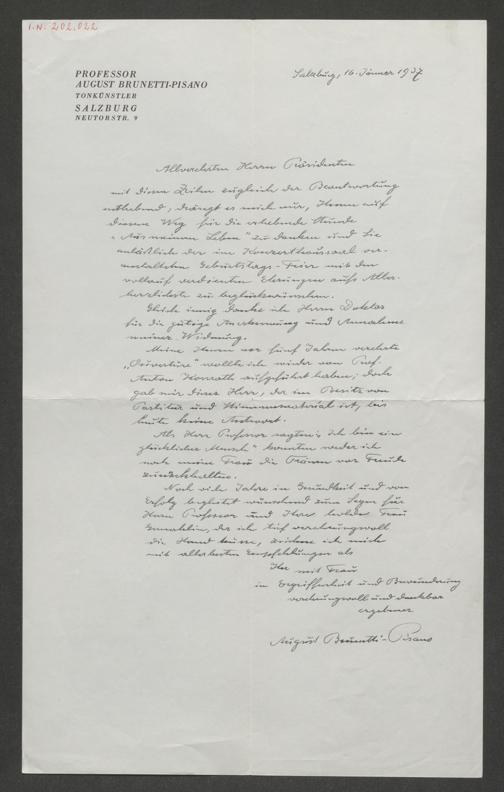 I.N. 202.022
PROFESSOR
AUGUST BRUNETTI-PISANO
TONKÜNSTLER
SALZBURG
NEUTORSTR. 9
Salzburg, 16. Jänner 1937
Allverehrten Herrn Präsidenten
mit diesen Zeilen zugleich der Beantwortung
enthebend, drängt es mich nur, Ihnen auf
diesem Weg für die erhebende Stunde
"Aus meinem Leben" zu danken und Sie
anläßlich der im Konzerthaussaal ver-
anstalteten Geburtstags-Feier mit den
vollauf verdienten Ehrungen aufs Aller-
herzlichste zu beglückwünschen.
Gleich innig danke ich Herrn Doktor
für die gütige Anerkennung und Annahme
meiner Widmung.
Meine Ihnen vor fünf Jahren verehrte
„Ouvertüre" wollte ich wieder von Prof.
Anton Konrath aufgeführt haben; doch
gab mir dieser Herr, der im Besitz von
Partitur und Stimmenmaterial ist, bis
heute keine Antwort.
Als Herr Professor sagten: "Ich bin ein
glücklicher Mensch" konnten weder ich
noch meine Frau die Tränen vor Freude
zurückhalten.
Noch viele Jahre in Gesundheit und von
Erfolg begleitet wünschend zum Segen für
Herrn Professor und Ihrer Frau
Gemahlin, der ich tief verehrungsvoll
die Hand küsse, zeichne ich mich
mit allerbesten Empfehlungen als
Ihr mit Frau
in Ergriffenheit und Bewunderung
verehrungsvoll und dankbar
ergebener
August Brunetti-Pisano